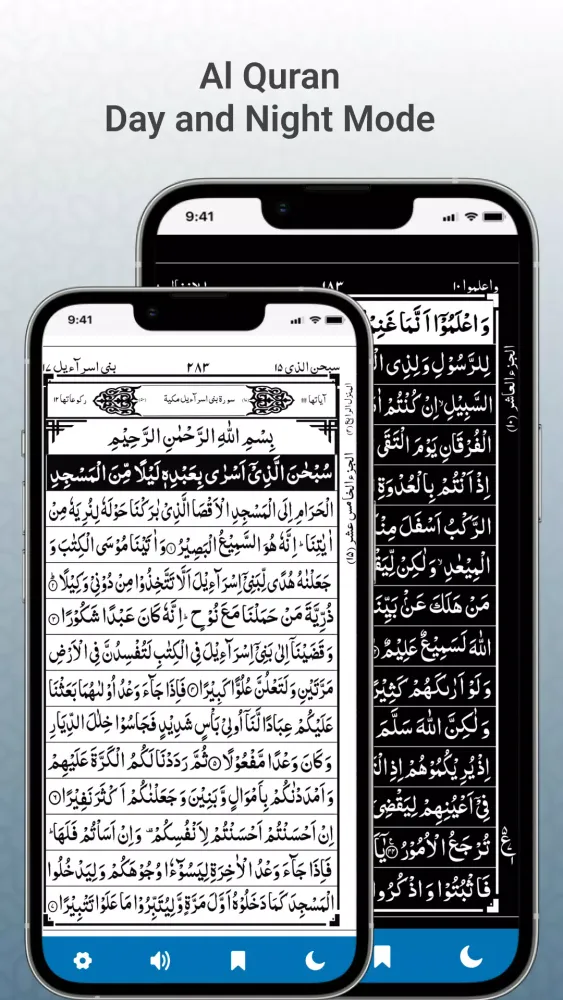 Al Quran
Day and Night Mode
9:41
واعلموا ١٠
١٨٣
وَاعْلَمُوْٓا اَنَّمَا غَنِ
لِلرَّسُوْلِ وَلِذِی
السَّبِيْلِ اِنْ كُنْتُمْ
الْفُرْقَانِ يَوْمَ الْتَقَی
اِذْ اَنْتُمْ بِالْعُدْوَةِ
الرَّكْبُ اَسْفَلَ
الْمِيْعٰدِ وَلٰكِنْ
مَنْ هَلَكَ عَنْۢ بَيِّنَ
اللّٰهَ لَسَمِيْعٌ عَلِيْمٌ
وَلَوْ اَرٰىكَهُمْ كَثِيْرً
وَلٰكِنَّ اللّٰهَ سَلَّمَ
اِذْ يُرِيْكُمُوْهُمْ اِذِ
فِیْٓ اَعْيُنِهِمْ لِيَقْضِیَ
تُرْجَعُ الْاُمُوْرُ
فَاثْبُتُوْا وَاذْكُرُوا
الجزء العاشر (١٠)
9:41
سبحن الذی ١٥ ٢٨٣ بنی اسرآءيل ١٧
اٰياتها ١١١ سورة بنی اسرآءيل مكية ركوعاتها ١٢
بِسْمِ اللّٰهِ الرَّحْمٰنِ الرَّحِيْمِ
سُبْحٰنَ الَّذِیْٓ اَسْرٰی بِعَبْدِهٖ لَيْلًا مِّنَ الْمَسْجِدِ
الْحَرَامِ اِلَی الْمَسْجِدِ الْاَقْصَا الَّذِیْ بٰرَكْنَا حَوْلَهٗ لِنُرِيَهٗ مِنْ
اٰيٰتِنَا ؕ اِنَّهٗ هُوَ السَّمِيْعُ الْبَصِيْرُ ۝١ وَاٰتَيْنَا مُوْسَی الْكِتٰبَ وَ
جَعَلْنٰهُ هُدًی لِّبَنِیْٓ اِسْرَآءِيْلَ اَلَّا تَتَّخِذُوْا مِنْ دُوْنِیْ وَكِيْلًا ۝٢
ذُرِّيَّةَ مَنْ حَمَلْنَا مَعَ نُوْحٍ ؕ اِنَّهٗ كَانَ عَبْدًا شَكُوْرًا ۝٣
وَقَضَيْنَآ اِلٰی بَنِیْٓ اِسْرَآءِيْلَ فِی الْكِتٰبِ لَتُفْسِدُنَّ فِی الْاَرْضِ
مَرَّتَيْنِ وَلَتَعْلُنَّ عُلُوًّا كَبِيْرًا ۝٤ فَاِذَا جَآءَ وَعْدُ اُوْلٰىهُمَا بَعَثْنَا
عَلَيْكُمْ عِبَادًا لَّنَآ اُولِیْ بَاْسٍ شَدِيْدٍ فَجَاسُوْا خِلٰلَ الدِّيَارِ
وَكَانَ وَعْدًا مَّفْعُوْلًا ۝٥ ثُمَّ رَدَدْنَا لَكُمُ الْكَرَّةَ عَلَيْهِمْ
وَاَمْدَدْنٰكُمْ بِاَمْوَالٍ وَّبَنِيْنَ وَجَعَلْنٰكُمْ اَكْثَرَ نَفِيْرًا ۝٦
اِنْ اَحْسَنْتُمْ اَحْسَنْتُمْ لِاَنْفُسِكُمْ وَاِنْ اَسَاْتُمْ فَلَهَا ؕ
فَاِذَا جَآءَ وَعْدُ الْاٰخِرَةِ لِيَسُوْٓءٗا وُجُوْهَكُمْ وَلِيَدْخُلُوا
الْمَسْجِدَ كَمَا دَخَلُوْهُ اَوَّلَ مَرَّةٍ وَّلِيُتَبِّرُوْا مَا عَلَوْا تَتْبِيْرًا ۝٧
المنزل الرابع (٤)
الجزء الخامس عشر (١٥)